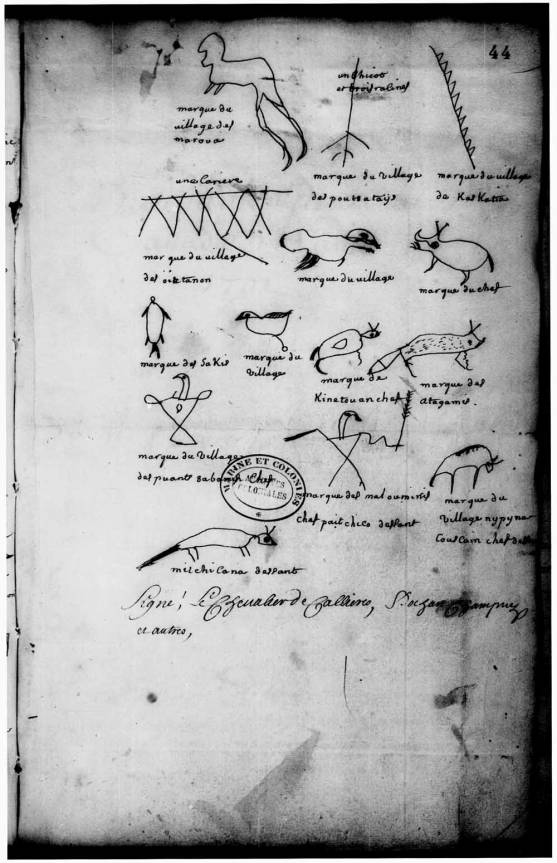 44
marque du
village des
maroua
un chicot
et trois racines
marque du village
des pouteatajs
marque du village
de KasKakia
une cariere
marque du village
des
marque du village
marque du chef
marque des SaKis
marque du
village
marque de
Kinetouan chef
marque des
atagamis.
marque du village
des puants
chef
MARINE ET COLONIES
COLONIALES
marque des maloumins
chef paitchico
marque du
village nypyna
chef
mitchilana
Signé, Le Chevalier de Callieres,
Champigny
et autres,